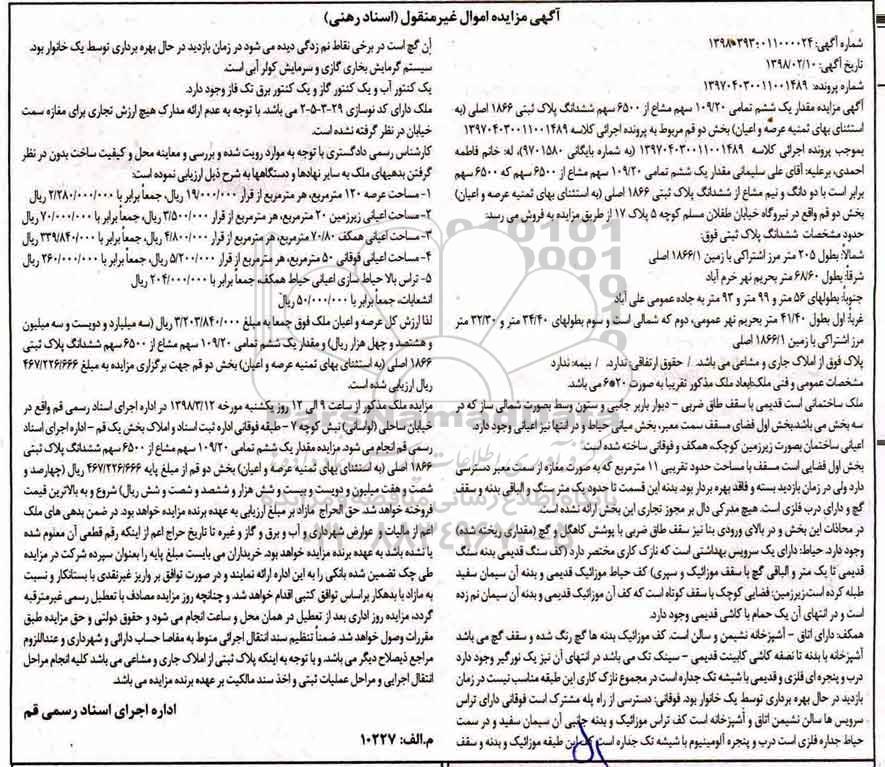 آگهی مزایده اموال غیرمنقول (اسناد رهنی)
تاریخ آگهی: ۱۳۹۸/۰۲/۱۰
شماره پرونده: ۱۳۹۷۰۴۰۳۰۰۱۱۰۰۱۴۸۹
آگهی مزایده مقدار یک ششم تمامی ۱۰۹/۲۰ سهم مشاع از ۶۵۰۰ سهم ششدانگ پلاک ثبتی ۱۸۶۶ اصلی (به
استثنای بهای ثمنیه عرصه و اعیان) بخش دو قم مربوط به پرونده اجرائی کلاسه ۱۳۹۷۰۴۰۳۰۰۱۱۰۰۱۴۸۹
بموجب پرونده اجرائی کلاسه ۱۳۹۷۰۴۰۳۰۰۱۱۰۰۱۴۸۹ (به شماره بایگانی ۹۷۰۱۵۸۰)، له: خانم فاطمه
احمدی، برعلیه: آقای علی سلیمانی مقدار یک ششم تمامی ۱۰۹/۲۰ سهم مشاع از ۶۵۰۰ سهم که ۶۵۰۰ سهم
برابر است با دو دانگ و نیم مشاع از ششدانگ پلاک ثبتی ۱۸۶۶ اصلی (به استثنای بهای ثمنیه عرصه و اعیان)
بخش دو قم واقع در نیروگاه خیابان طفلان مسلم کوچه ۵ پلاک ۱۷ از طریق مزایده به فروش می رسد:
حدود مشخصات ششدانگ پلاک ثبتی فوق:
شمالاً: بطول ۲۰۵ متر مرز اشتراکی با زمین ۱۸۶۶/۱ اصلی
شرقاً: بطول ۶۸/۶۰ متر بحریم نهر خرم آباد
جنوباً: بطولهای ۵۶ متر و ۹۹ متر و ۹۳ متر به جاده عمومی علی آباد
غرباً: اول بطول ۴۱/۴۰ متر بحریم نهر عمومی، دوم که شمالی است و سوم بطولهای ۳۴/۴۰ متر و ۳۲/۳۰ متر
مرز اشتراکی با زمین ۱۸۶۶/۱ اصلی
پلاک فوق از املاک جاری و مشاعی می باشد. / حقوق ارتفاقی: ندارد. / بیمه: ندارد
مشخصات عمومی و فنی ملک: ابعاد ملک مذکور تقریبا به صورت ۲۰*۶ می باشد.
ملک ساختمانی است قدیمی با سقف طاق ضربی - دیوار باربر جانبی و ستون وسط بصورت شمالی ساز که در
سه بخش می باشد. بخش اول فضای مسقف سمت معبر، بخش میانی حیاط و در انتها نیز اعیانی وجود دارد.
اعیانی ساختمان بصورت زیرزمین کوچک، همکف و فوقانی ساخته شده است.
بخش اول فضایی است مسقف با مساحت حدود تقریبی ۱۱ مترمربع که به صورت مغازه از سمت معبر دسترسی
دارد ولی در زمان بازدید بسته و فاقد بهره بردار بود. بدنه این قسمت تا حدود یک متر سنگ و الباقی بدنه و سقف
گچ و دارای درب فلزی است. هیچ مدرکی دال بر مجوز تجاری این بخش ارائه نشده است.
در محاذات این بخش و در بالای ورودی بنا نیز سقف طاق ضربی با پوشش کاهگل و گچ (مقداری ریخته شده)
وجود دارد. حیاط: دارای یک سرویس بهداشتی است که نازک کاری مختصر دارد (کف سنگ قدیمی بدنه سنگ
قدیمی تا یک متر و الباقی گچ با سقف موزائیک و سپری) کف حیاط موزائیک قدیمی و بدنه آن سیمان سفید
طبله کرده است. زیرزمین: فضایی کوچک با سقف کوتاه است که کف آن موزائیک قدیمی و بدنه آن سیمان نم زده
است و در انتهای آن یک حمام با کاشی قدیمی وجود دارد.
همکف: دارای اتاق - آشپزخانه نشیمن و سالن است. کف موزائیک بدنه ها گچ رنگ شده و سقف گچ می باشد
آشپزخانه با بدنه تا نصفه کاشی کابینت قدیمی - سینک تک می باشد در انتهای آن نیز یک نورگیر وجود دارد
درب و پنجره ای فلزی و قدیمی با شیشه تک جداره است در مجموع نازک کاری این طبقه مناسب نیست در زمان
بازدید در حال بهره برداری توسط یک خانوار بود. فوقانی: دسترسی از راه پله مشترک است فوقانی دارای تراس
سرویس ها سالن نشیمن اتاق و آشپزخانه است کف تراس موزائیک و بدنه جانبی آن سیمان سفید و در سمت
حیاط جداره فلزی است درب و پنجره آلومینیوم با شیشه تک جداره است کف این طبقه موزائیک و بدنه و سقف
آن گچ است در برخی نقاط نم زدگی دیده می شود در زمان بازدید در حال بهره برداری توسط یک خانوار بود.
سیستم گرمایش بخاری گازی و سرمایش کولر آبی است.
یک کنتور آب و یک کنتور گاز و یک کنتور برق تک فاز وجود دارد.
ملک دارای کد نوسازی ۲۹-۳-۵-۲ می باشد. با توجه به عدم ارائه مدارک هیچ ارزش تجاری برای مغازه سمت
خیابان در نظر گرفته نشده است.
کارشناس رسمی دادگستری با توجه به موارد رویت شده و بررسی و معاینه محل و کیفیت ساخت بدون در نظر
گرفتن بدهیهای ملک به سایر نهادها و دستگاهها به شرح ذیل ارزیابی نموده است:
۱- مساحت عرصه ۱۲۰ مترمربع، هر مترمربع از قرار ۱۹/۰۰۰/۰۰۰ ریال، جمعاً برابر با ۲/۲۸۰/۰۰۰/۰۰۰ ریال
۲- مساحت اعیانی زیرزمین ۲۰ مترمربع، هر مترمربع از قرار ۳/۵۰۰/۰۰۰ ریال، جمعاً برابر با ۷۰/۰۰۰/۰۰۰ ریال
۳- مساحت اعیانی همکف ۷۰/۸۰ مترمربع، هر مترمربع از قرار ۴/۸۰۰/۰۰۰ ریال، جمعاً برابر با ۳۳۹/۸۴۰/۰۰۰ ریال
۴- مساحت اعیانی فوقانی ۵۰ مترمربع، هر مترمربع از قرار ۵/۲۰۰/۰۰۰ ریال، جمعاً برابر با ۲۶۰/۰۰۰/۰۰۰ ریال
۵- تراس بالا حیاط سازی اعیانی حیاط همکف، جمعاً برابر با ۲۰۴/۰۰۰/۰۰۰ ریال
انشعابات، جمعاً برابر با ۵۰/۰۰۰/۰۰۰ ریال
لذا ارزش کل عرصه و اعیان ملک فوق جمعا به مبلغ ۳/۲۰۳/۸۴۰/۰۰۰ ریال (سه میلیارد و دویست و سه میلیون
و هشتصد و چهل هزار ریال) و مقدار یک ششم تمامی ۱۰۹/۲۰ سهم مشاع از ۶۵۰۰ سهم ششدانگ پلاک ثبتی
۱۸۶۶ اصلی (به استثنای بهای ثمنیه عرصه و اعیان) بخش دو قم جهت برگزاری مزایده به مبلغ ۴۶۷/۲۲۶/۶۶۶
ریال ارزیابی شده است.
مزایده ملک مذکور از ساعت ۹ الی ۱۲ روز یکشنبه مورخه ۱۳۹۸/۳/۱۲ در اداره اجرای اسناد رسمی قم واقع در
خیابان ساحلی (لواسانی) نبش کوچه ۷ - طبقه فوقانی اداره ثبت اسناد و املاک بخش یک قم - اداره اجرای اسناد
رسمی قم انجام می شود. مزایده مقدار یک ششم تمامی ۱۰۹/۲۰ سهم مشاع از ۶۵۰۰ سهم ششدانگ پلاک ثبتی
۱۸۶۶ اصلی (به استثنای بهای ثمنیه عرصه و اعیان) بخش دو قم از مبلغ پایه ۴۶۷/۲۲۶/۶۶۶ ریال (چهارصد و
شصت و هفت میلیون و دویست و بیست و شش هزار و ششصد و شصت و شش ریال) شروع و به بالاترین قیمت
فروخته خواهد شد. حق الحراج مازاد بر مبلغ ارزیابی به عهده برنده مزایده خواهد بود. در ضمن بدهی های ملک
اعم از مالیات و عوارض شهرداری و آب و برق و گاز و غیره تا تاریخ حراج اعم از اینکه رقم قطعی آن معلوم شده
یا نشده باشد به عهده برنده مزایده خواهد بود. خریداران می بایست مبلغ پایه را بعنوان سپرده شرکت در مزایده
طی چک تضمین شده بانکی را به این اداره ارائه نمایند و در صورت توافق بر واریز غیرنقدی با بستانکار و نسبت
به مازاد با بدهکار براساس توافق کتبی اقدام خواهد شد. و چنانچه روز مزایده مصادف با تعطیل رسمی غیرمترقبه
گردد، مزایده روز اداری بعد از تعطیل در همان محل و ساعت انجام می شود و حقوق دولتی و حق مزایده طبق
مقررات وصول خواهد شد. ضمناً تنظیم سند انتقال اجرائی منوط به مفاصا حساب دارائی و شهرداری و عنداللزوم
مراجع ذیصلاح دیگر می باشد. و با توجه به اینکه پلاک ثبتی از املاک جاری و مشاعی می باشد کلیه انجام مراحل
انتقال اجرایی و مراحل عملیات ثبتی و اخذ سند مالکیت بر عهده برنده مزایده می باشد.
اداره اجرای اسناد رسمی قم
م.الف: ۱۰۲۲۷